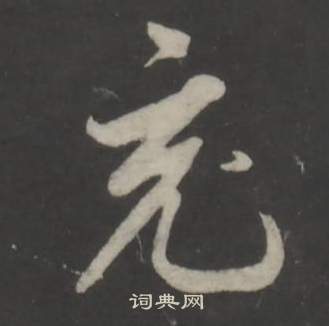 充
词典网